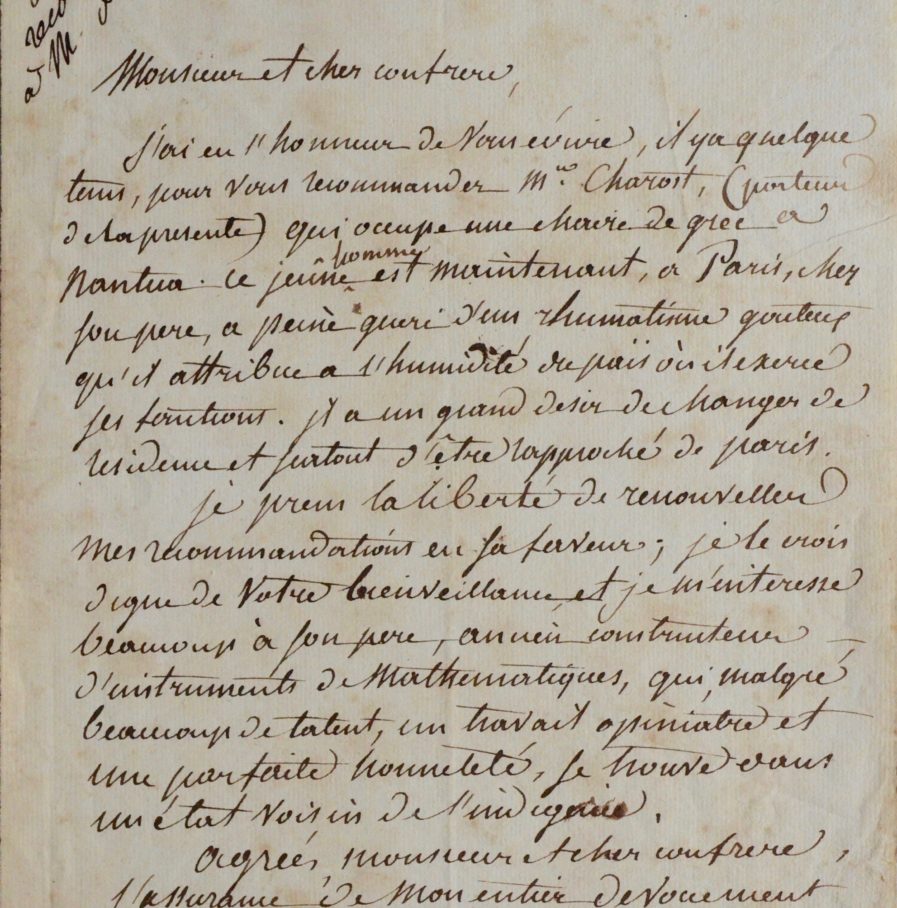 a M.
Monsieur et cher confrere,
J'ai eu l'honneur de Vous écrire, il y a quelque
tems, pour vous recommander Mr. Charost, (porteur
de la presente) qui occupe une chaire de grec a
Nantua. Ce jeûne homme est maintenant, a Paris, chez
son pere, a peine gueri d'un rhumatisme gouteux
qu'il attribue a l'humidité du païs où il exerce
ses fonctions. Il a un grand desir de changer de
residence et surtout d'être rapproché de paris.
je prens la liberté de renouveller
mes recommandations en sa faveur; je le crois
digne de Votre bienveillance et je m'interesse
beaucoup à son pere, ancien constructeur
d'instruments de Mathematiques, qui, malgré
beaucoup de talent, un travail opiniatre et
une parfaite honneteté, se trouve dans
un état voisin de l'indigence.
agreés, monsieur et cher confrere,
l'assurance de Mon entier devouement